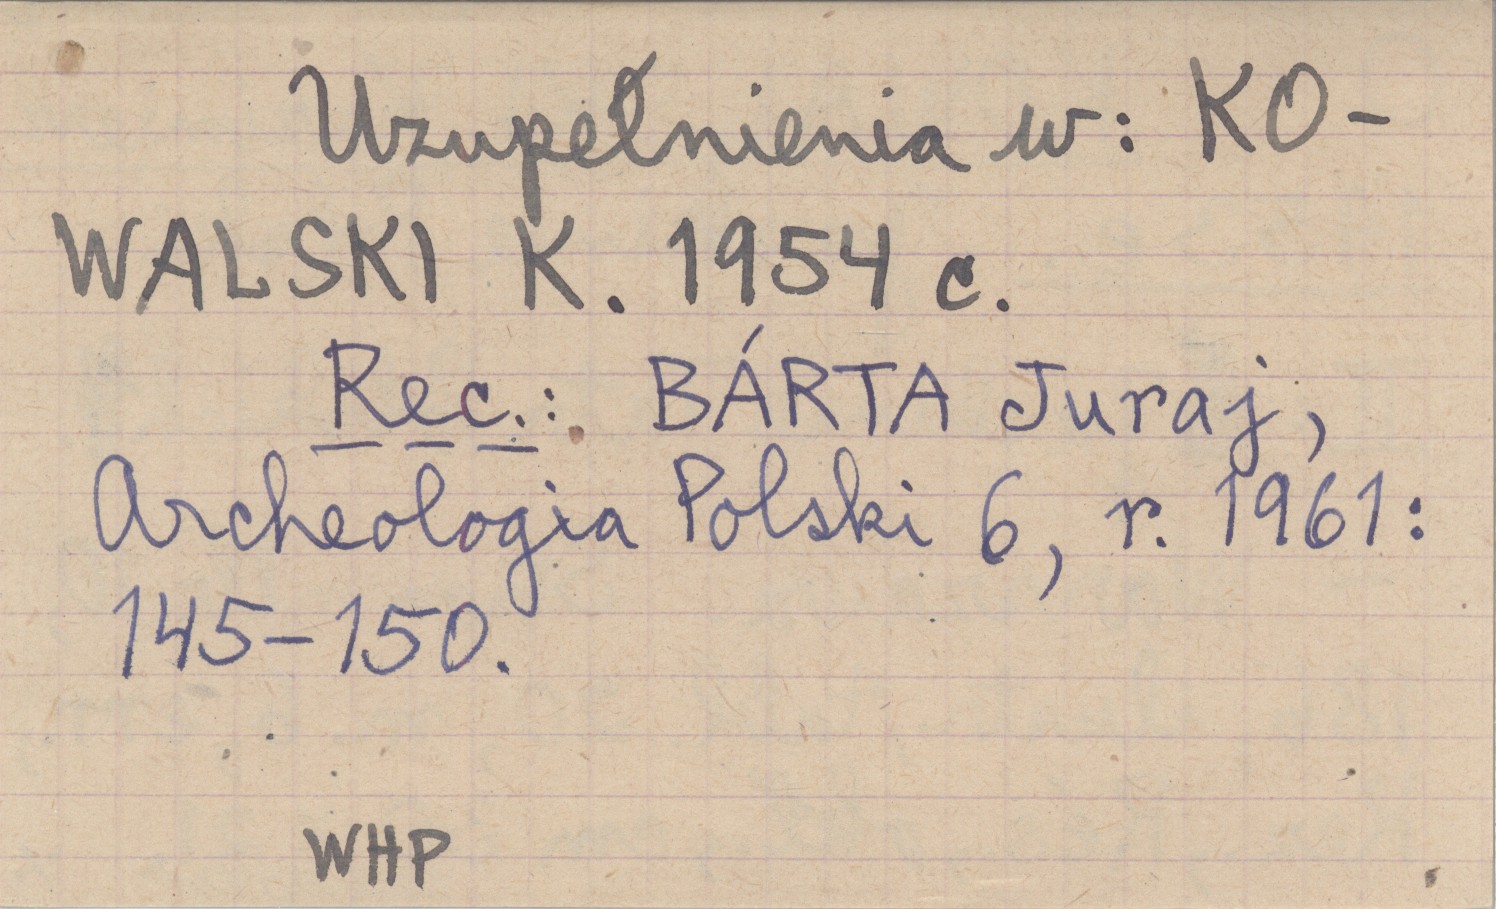 Uzupełnienia w: KO-
WALSKI K. 1954 c.
Rec.: BÁRTA Juraj,
Archeologia Polski 6, r. 1961:
145-150.
WHP